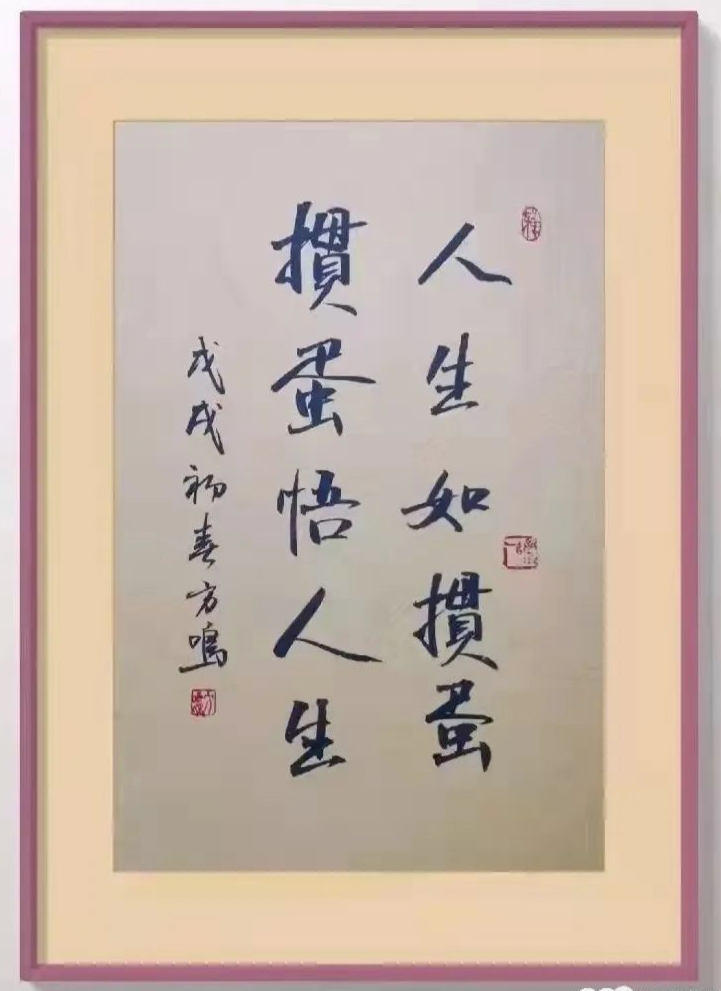 人生如掼蛋
掼蛋悟人生
戊戌初春方鸣